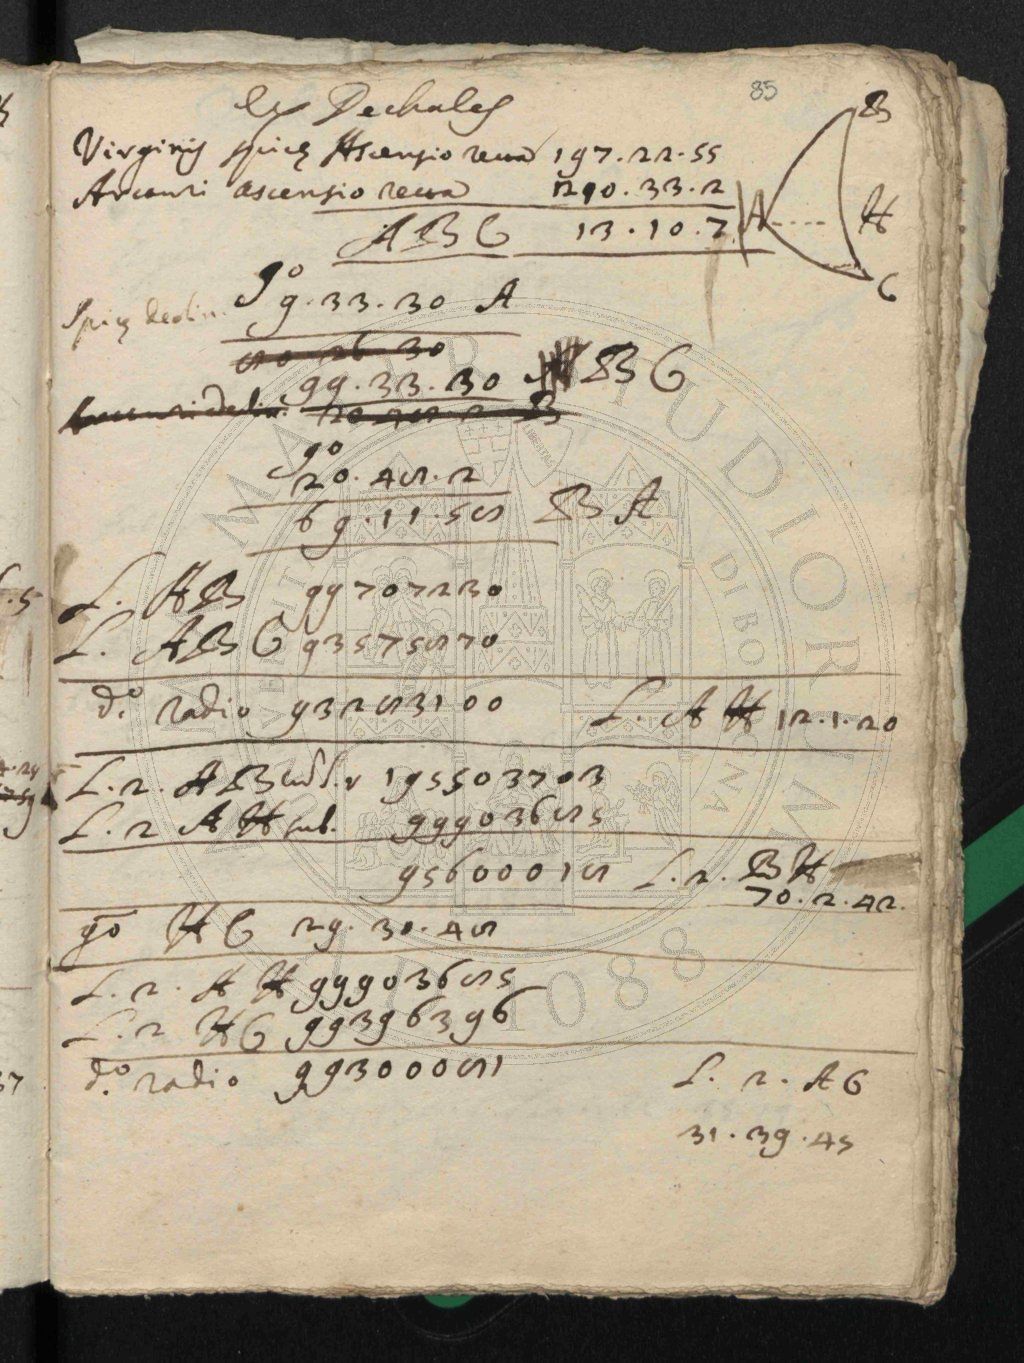 85
Ex Dechales
Virginis spicę Ascensio recta 197.22.55
Arcturi ascensio recta 210.33.2
ABC 13.10.7
B
A
H
C
90
Spicę declin. 9.33.30 A
80 26 30
99.33.30 BC
90
20.48.2
69.11.58 BA
L. AB 99707230
L. ABC 93575870
d.o radio 93283100 L. AH 12.1.20
L.2. AB 195503703
L.2 AH sub. 99903685
95600018 L.2. BH
70.2.42.
go HC 29.30.48
L.2. AH 99903685
L.2 HC 99396396
d.o radio 99300081 L. 2. AC
31.39.45